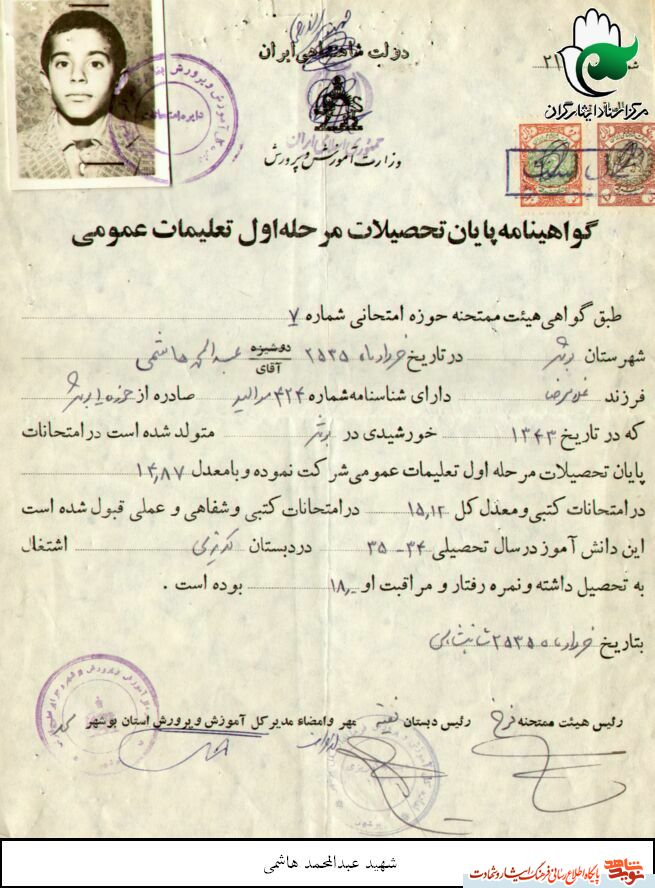 دولت شاهنشاهی ایران
مرکز اسناد ایثارگران
جمهوری اسلامی ایران
وزارت آموزش و پرورش
گواهینامه پایان تحصیلات مرحله اول تعلیمات عمومی
طبق گواهی هیئت ممتحنه حوزه امتحانی شماره ۷
شهرستان بوشهر در تاریخ خرداد ماه ۲۵۳۵ دوشیزه آقای عبدالمحمد هاشمی
فرزند غلامرضا دارای شناسنامه شماره ۴۲۴ صادره از حوزه بوشهر
که در تاریخ ۱۳۴۳ خورشیدی در بوشهر متولد شده است در امتحانات
پایان تحصیلات مرحله اول تعلیمات عمومی شرکت نموده و بامعدل ۱۴٫۸۷
در امتحانات کتبی و معدل کل ۱۵٫۱۲ در امتحانات کتبی و شفاهی و عملی قبول شده است
این دانش آموز در سال تحصیلی ۳۴-۳۵ در دبستان اشتغال
به تحصیل داشته و نمره رفتار و مراقبت او ۱۸٫ بوده است .
بتاریخ خرداد ماه ۲۵۳۵ شاهنشاهی
رئیس هیئت ممتحنه فرخ رئیس دبستان مهر و امضاء مدیر کل آموزش و پرورش استان بوشهر
شهید عبدالمحمد هاشمی
نوید شاهد
پایگاه اطلاع رسانی فرهنگ ایثار و شهادت